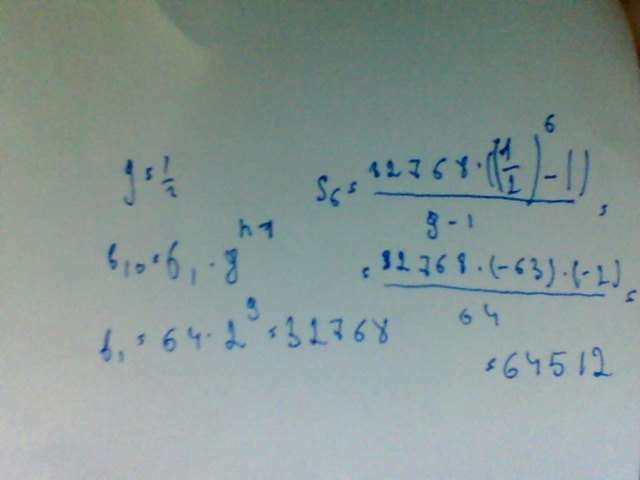 q = 1/2
b₁₀ = b₁ · q^(n-1)
b₁ = 64 · 2⁹ = 32768
S₆ = 32768 · ((1/2)⁶ - 1) / q - 1 =
= 32768 · (-63) · (-2) / 64 =
= 64512